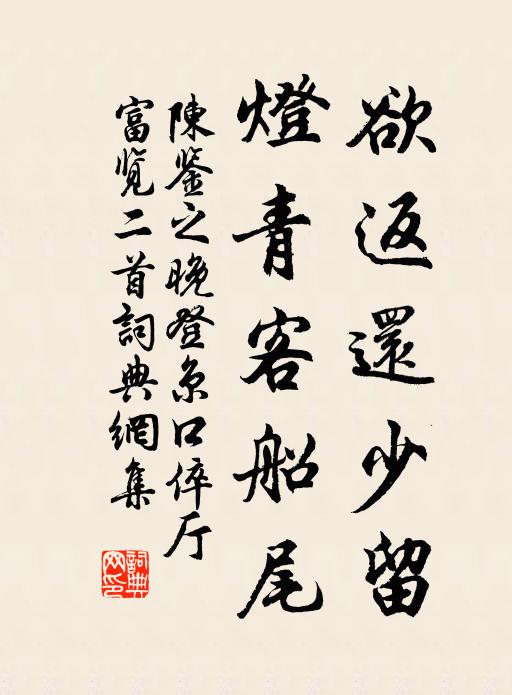 欲返還少留
燈青客船尾
陳鉴之晚登京口倅厅
富览二首詞典網集
詞典网印